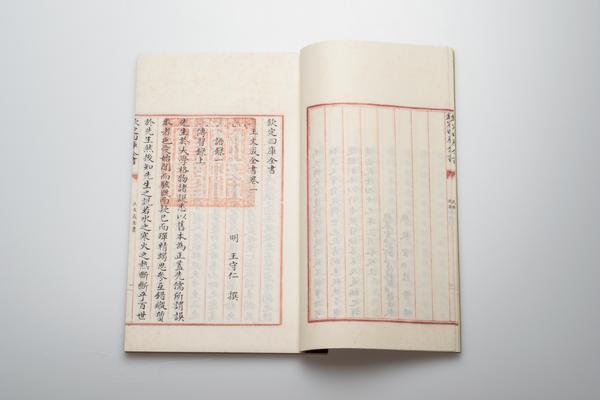 欽定四庫全書
王文成全書卷一
明 王守仁 撰
語録一
傳習録上
先生於大學格物諸說悉以舊本為正蓋先儒所謂誤
本者也愛始聞而駭既而疑已而殫精竭思參互錯縱質
於先生然後知先生之說若水之寒火之熱斷斷乎百世
欽定四庫全書
王文成全書